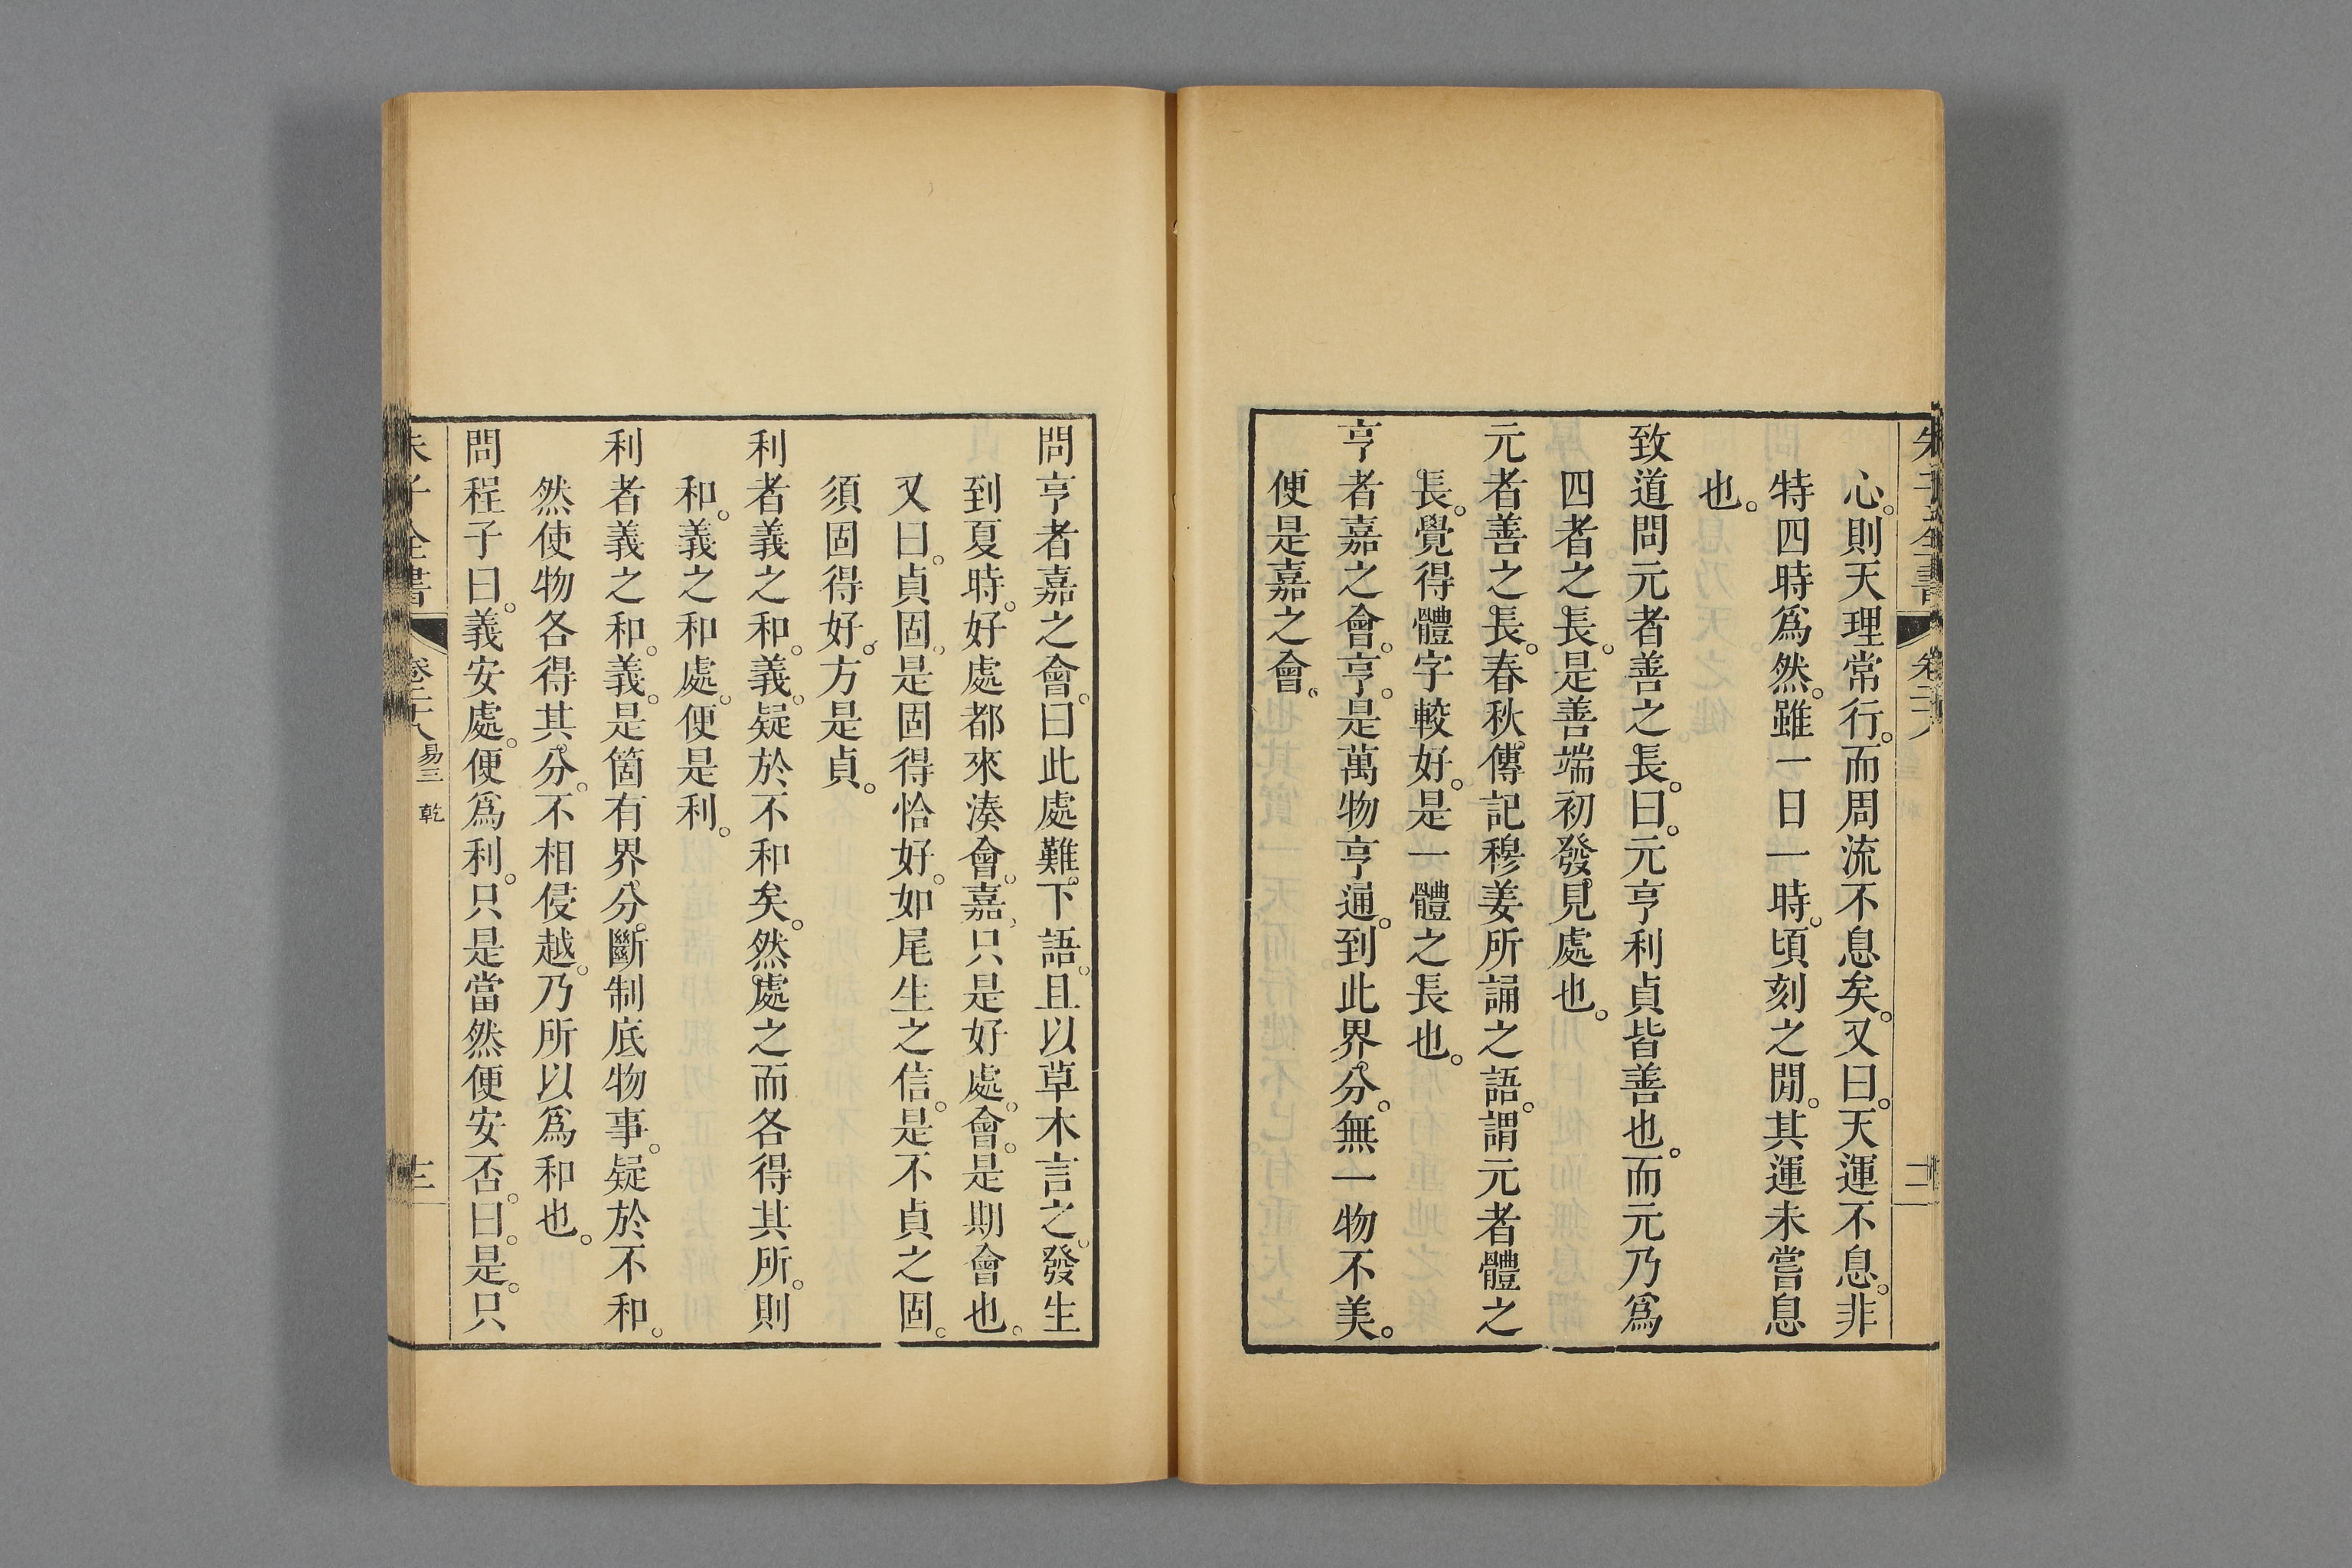 心。則天理常行。而周流不息矣。又曰。天運不息。非
特四時爲然。雖一日一時。頃刻之閒。其運未嘗息
也。
致道問元者善之長。曰。元亨利貞皆善也。而元乃爲
四者之長。是善端初發見處也。
元者善之長。春秋傳記穆姜所誦之語。謂元者體之
長。覺得體字較好。是一體之長也。
亨者嘉之會。亨。是萬物亨通。到此界分。無一物不美。
便是嘉之會。
問亨者嘉之會。曰此處難下語。且以草木言之。發生
到夏時。好處都來湊會。嘉。只是好處。會。是期會也。
又曰。貞固。是固得恰好。如尾生之信。是不貞之固。
須固得好。方是貞。
利者義之和。義。疑於不和矣。然處之而各得其所。則
和。義之和處。便是利。
利者義之和。義。是箇有界分。斷制底物事。疑於不和。
然使物各得其分。不相侵越。乃所以爲和也。
問程子曰。義安處。便爲利。只是當然便安否。曰。是。只
朱子全書 卷二十八 易三 乾